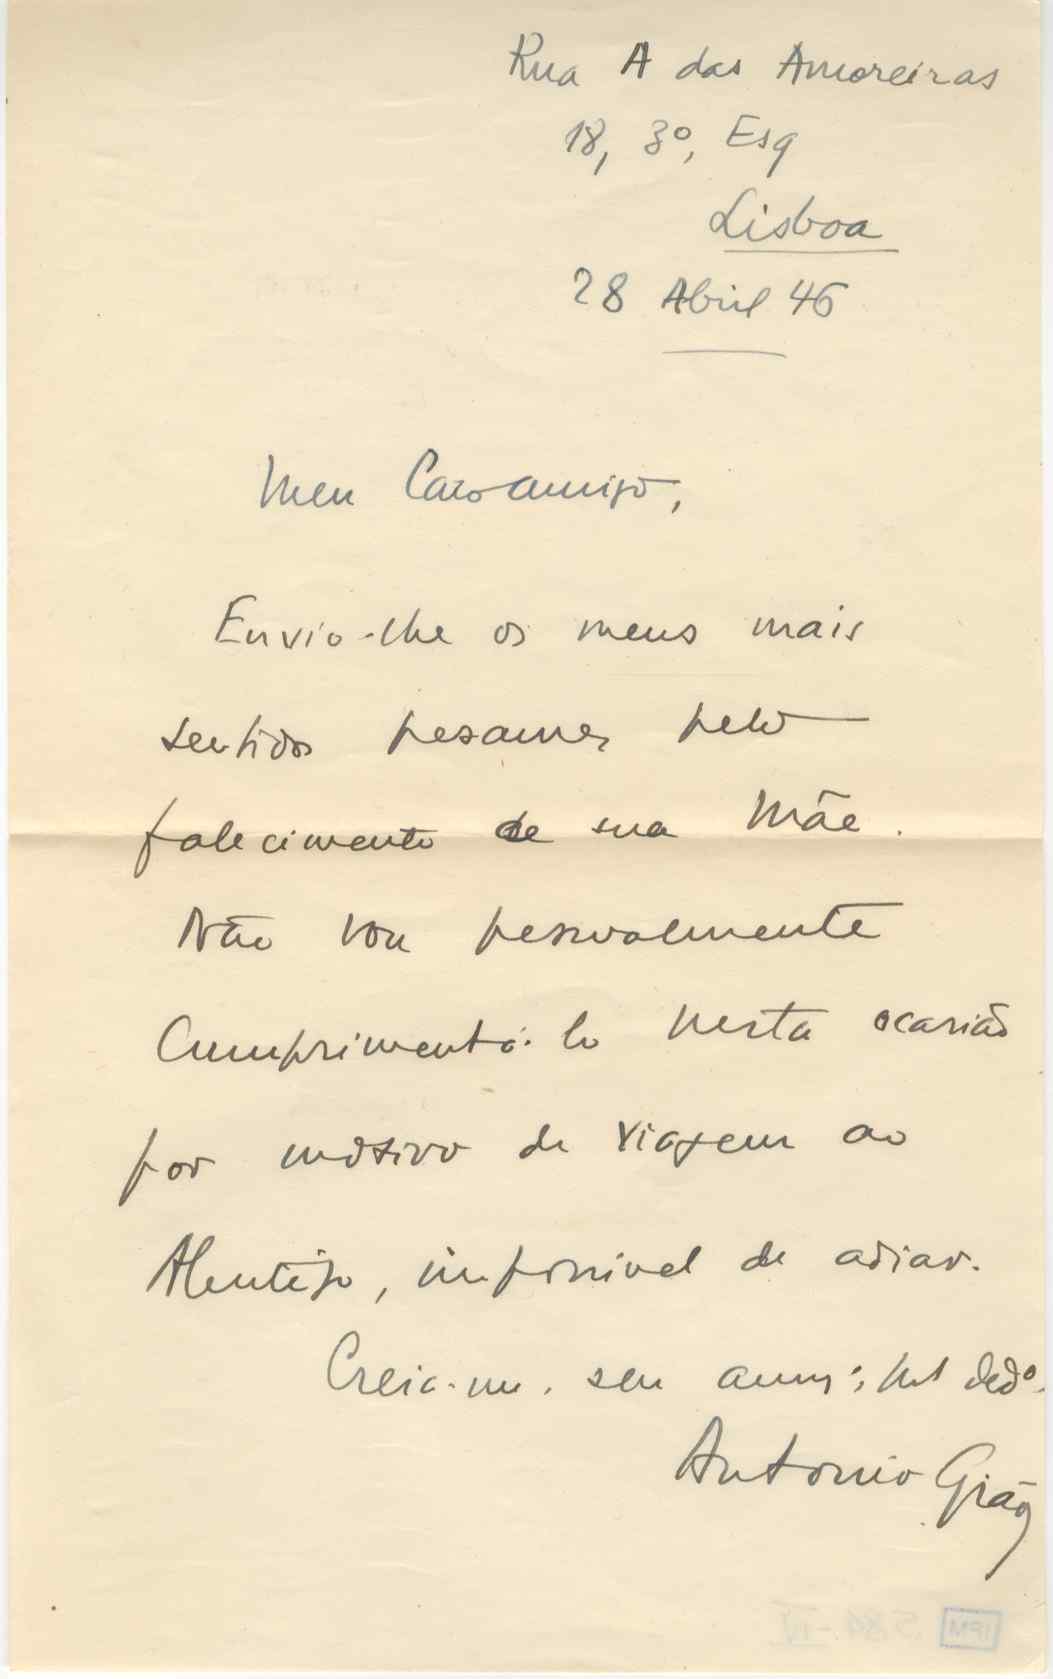 Rua A das Amoreiras
18, 3º, Esq
Lisboa
28 Abril 46
Meu Caro amigo,
Envio-lhe os meus mais
sentidos pesames pelo
falecimento de sua Mãe.
Não vou pessoalmente
cumprimentá-lo nesta ocasião
por motivo de viagem ao
Alentejo, impossivel de adiar.
Creia-me, seu amº, dedº,
Antonio Gião
IPM 584-IV